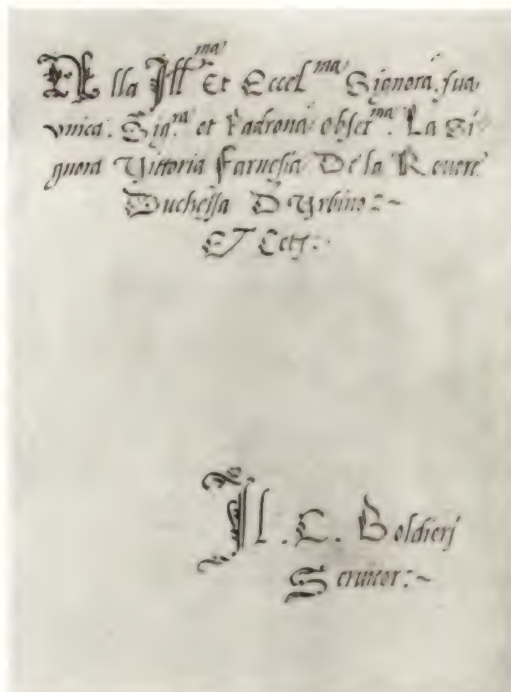 Alla Ill^ma Et Eccel^ma Signora, sua
vnica. Sig^ra et Padrona obser^ma. La Si
gnora Vittoria Farnesia De la Rouere
Duchessa D Vrbino :~
ET Cetj :.
Il. C. Boldierj
Seruitor :~